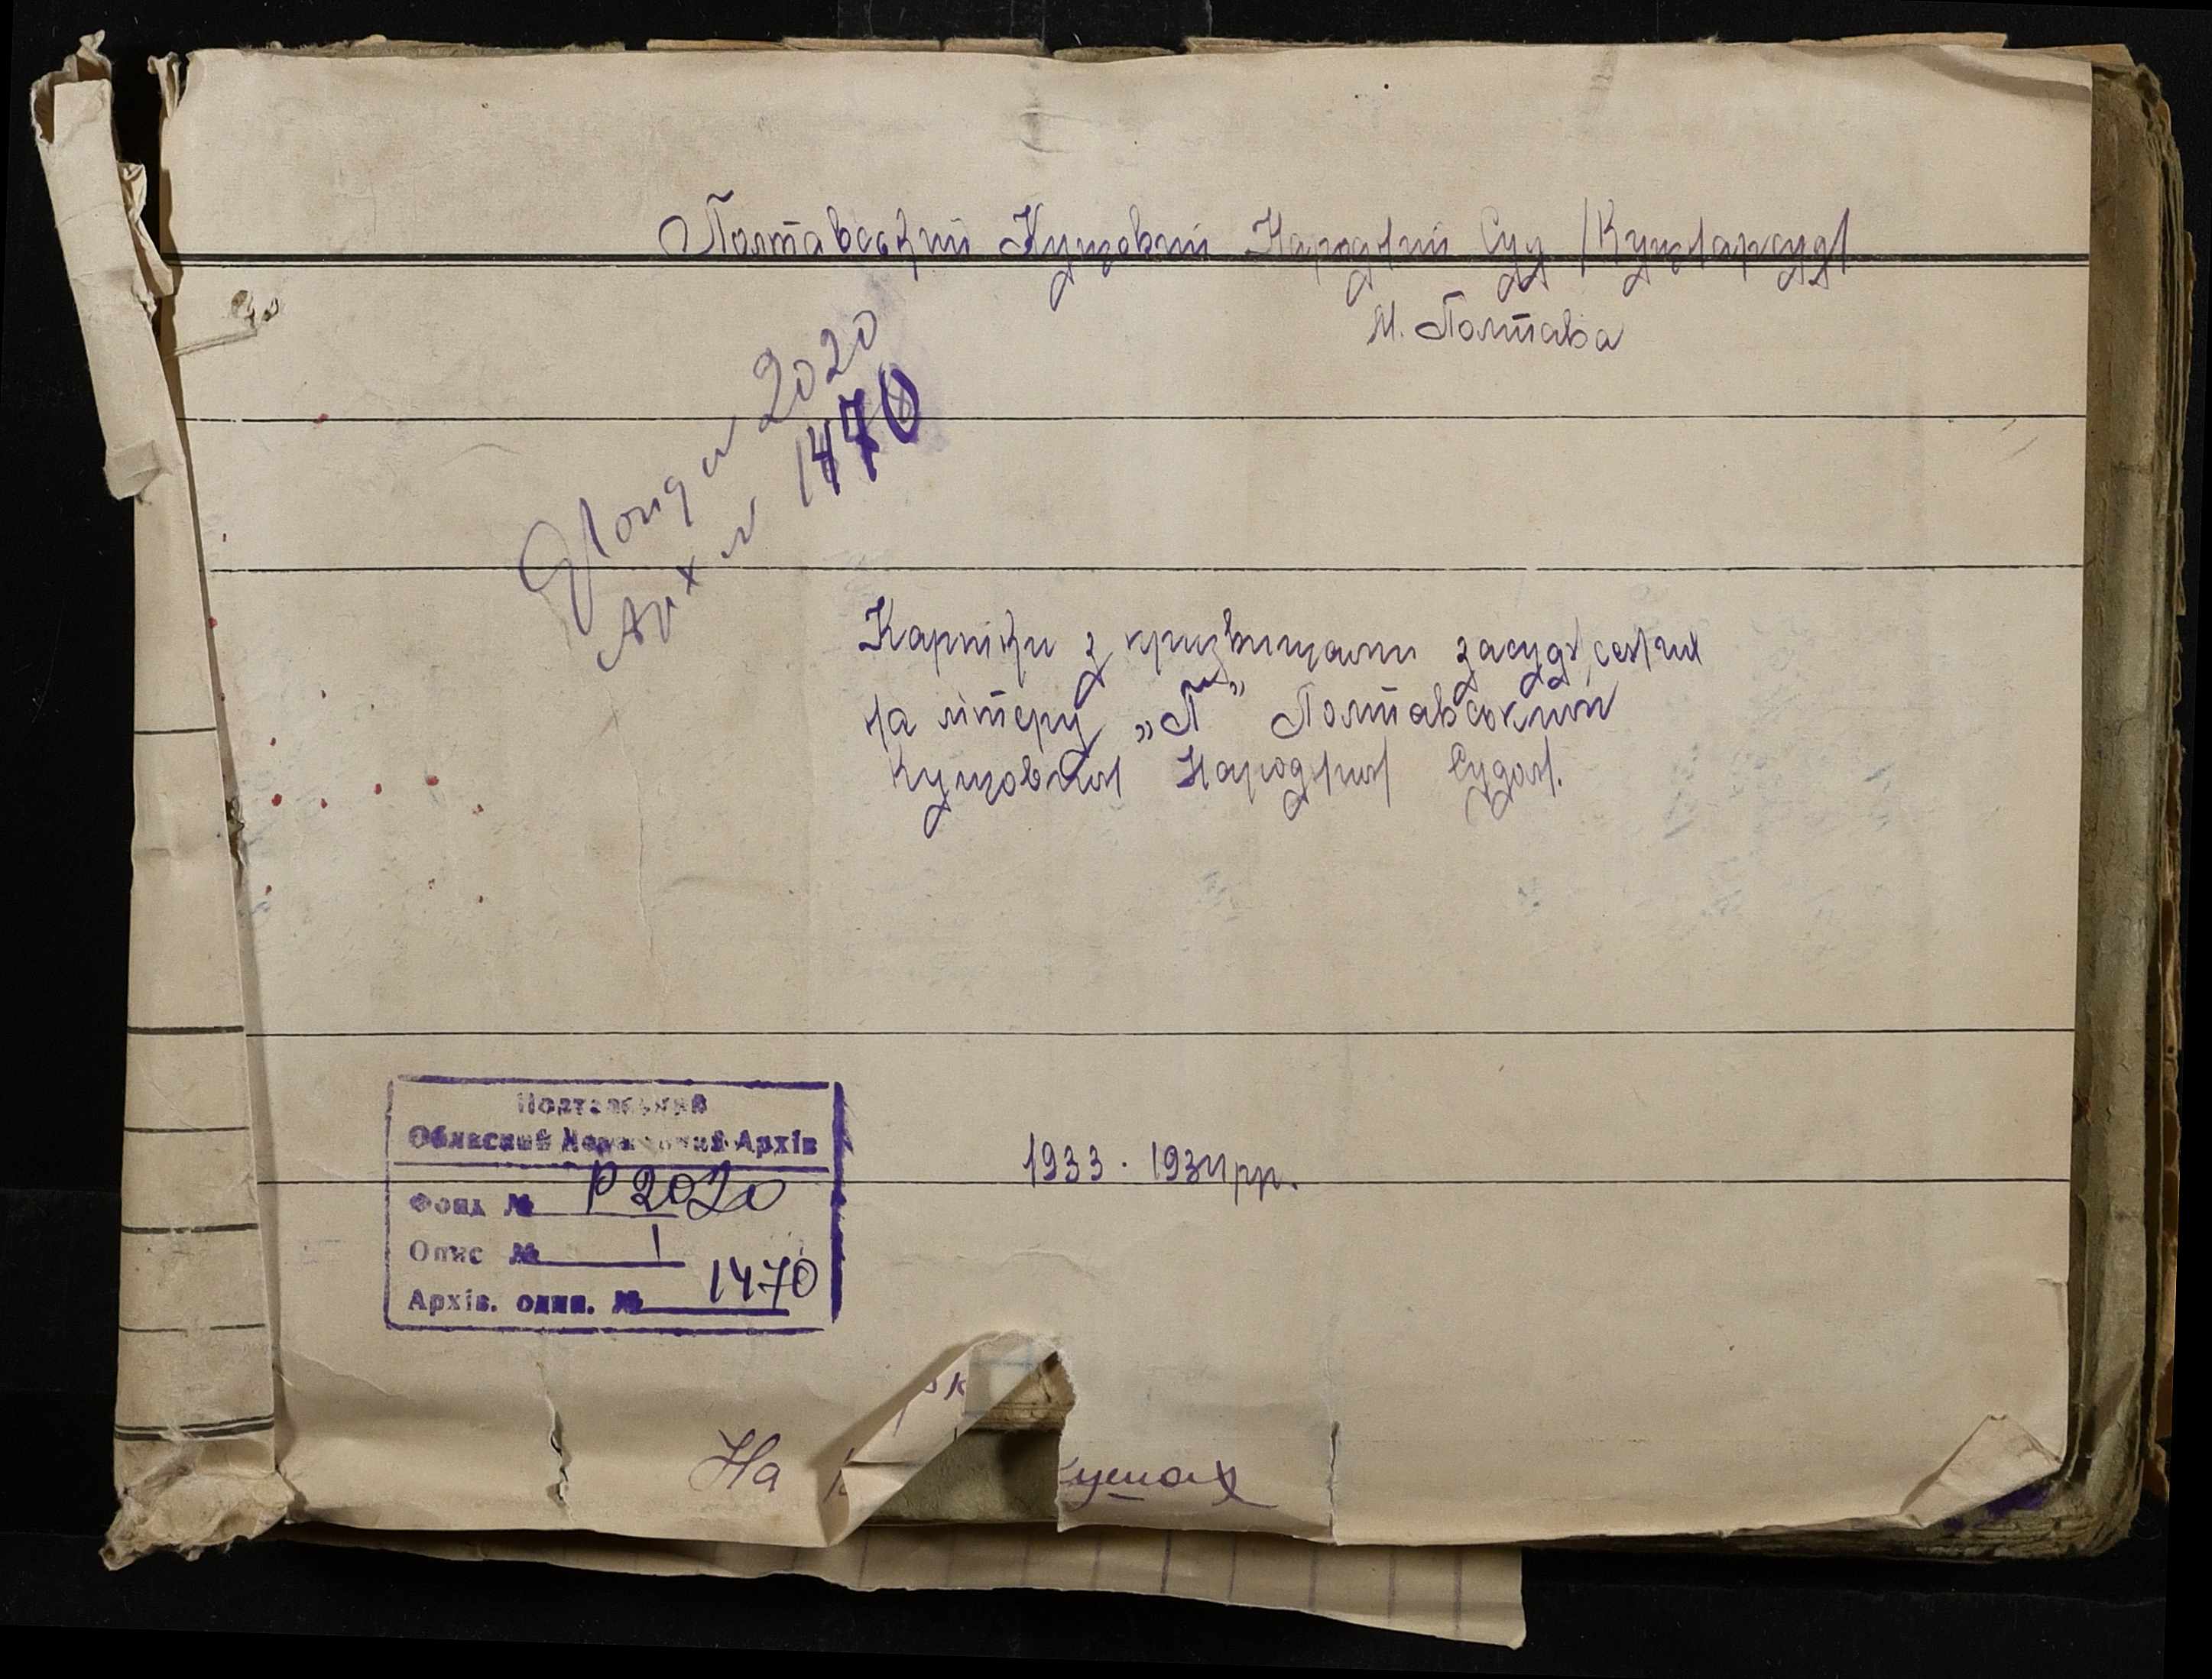 Полтавський Кущовий Народний Суд /Кущнарсуд/
м. Полтава
Фонд № 2020
Арх № 1470
Картки з прізвищами засуджених
на літеру „П" Полтавським
Кущовим Народним Судом.
Полтавський
Обласний Державний Архів
Фонд № Р2020
Опис № 1
Архів. один. № 1470
1933 - 1934 рр.
На